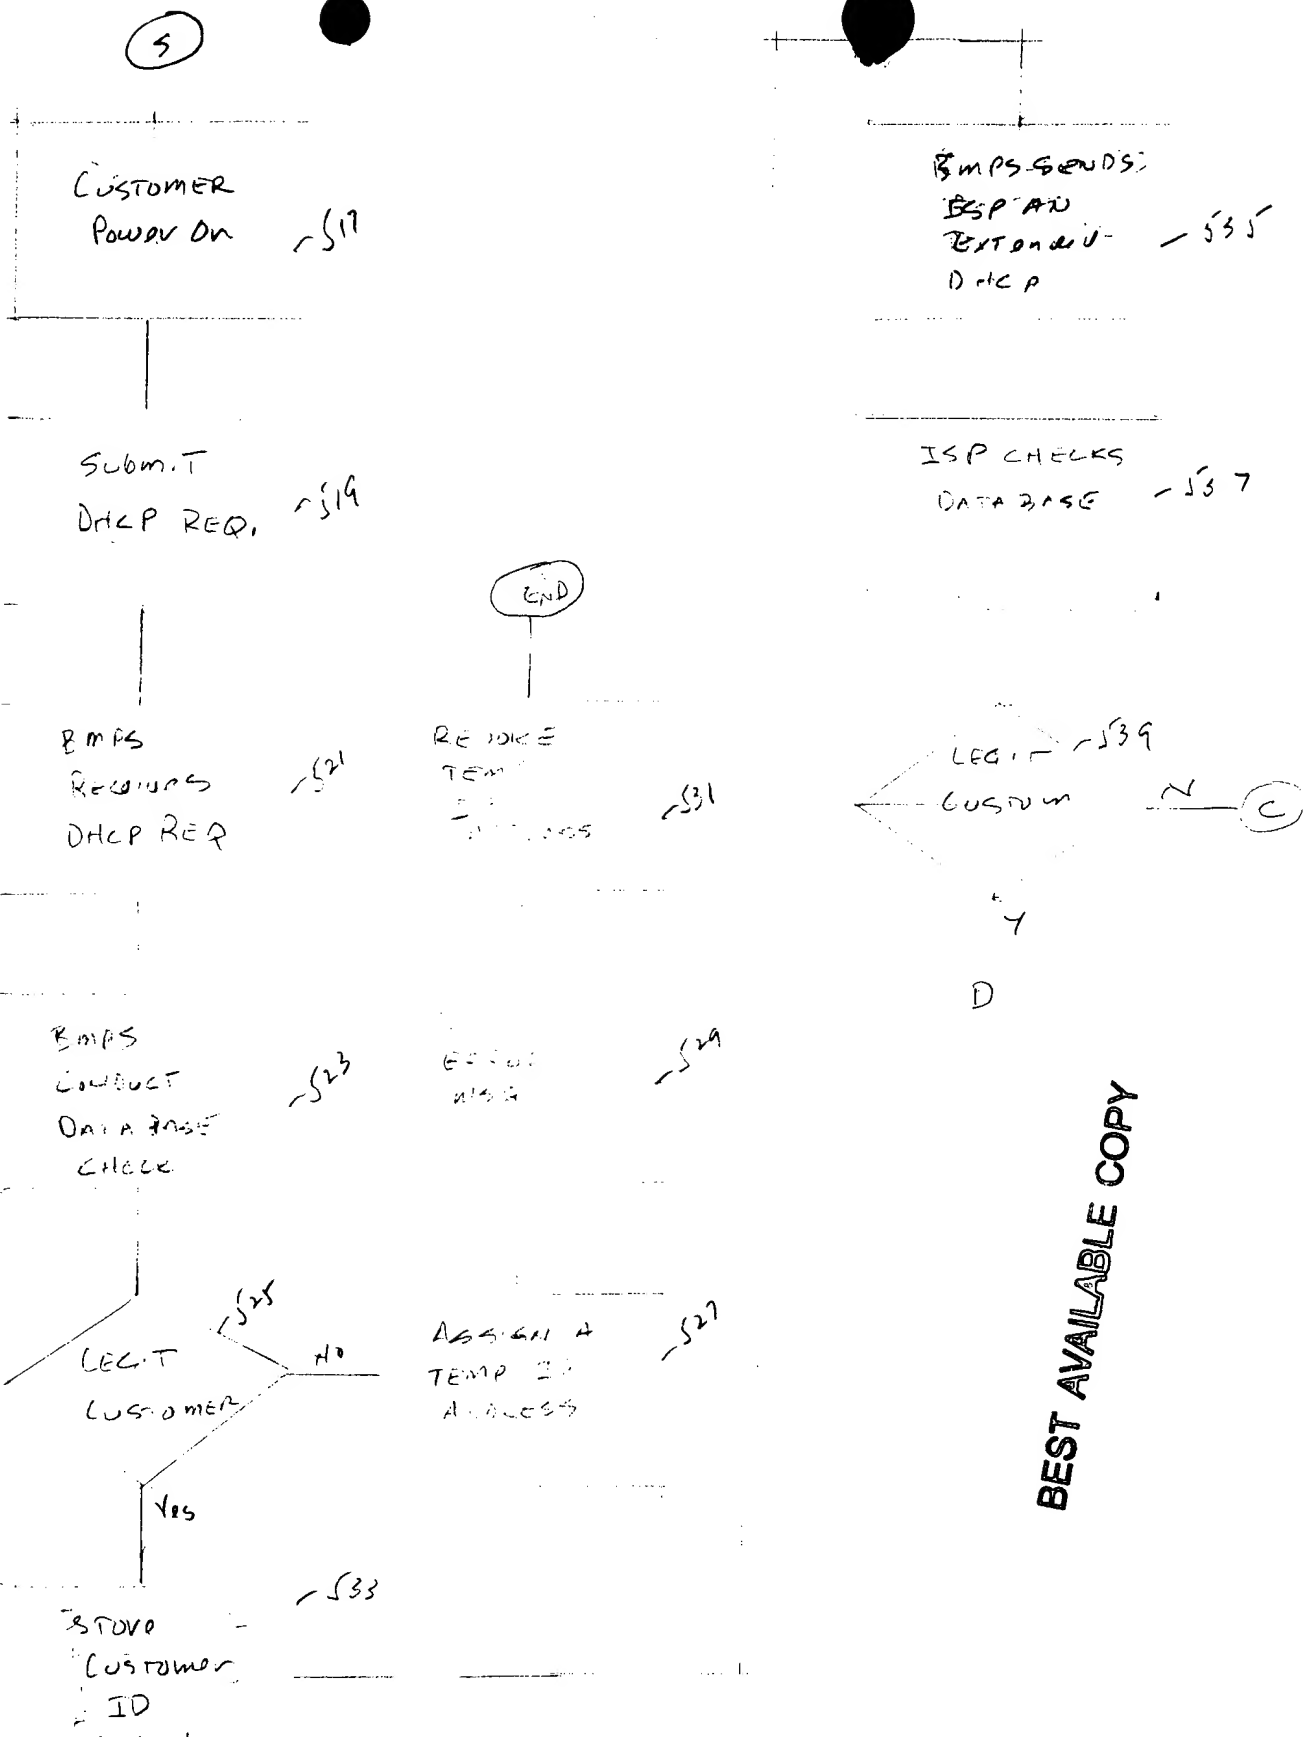 5
CUSTOMER
Power On
517
Submit
DHCP REQ.
519
BMPS
Receives
DHCP REQ
521
BMPS
CONDUCT
DATABASE
CHECK
523
LEGIT
CUSTOMER
525
NO
Yes
Store
Customer
ID
533
END
REVOKE
TEMP
531
ERROR
MSG
529
ASSIGN A
TEMP IP
ADDRESS
527
BMPS SENDS
ISP AN
Extended
DHCP
535
ISP CHECKS
DATABASE
537
LEGIT
CUSTOM
539
N
C
Y
D
BEST AVAILABLE COPY